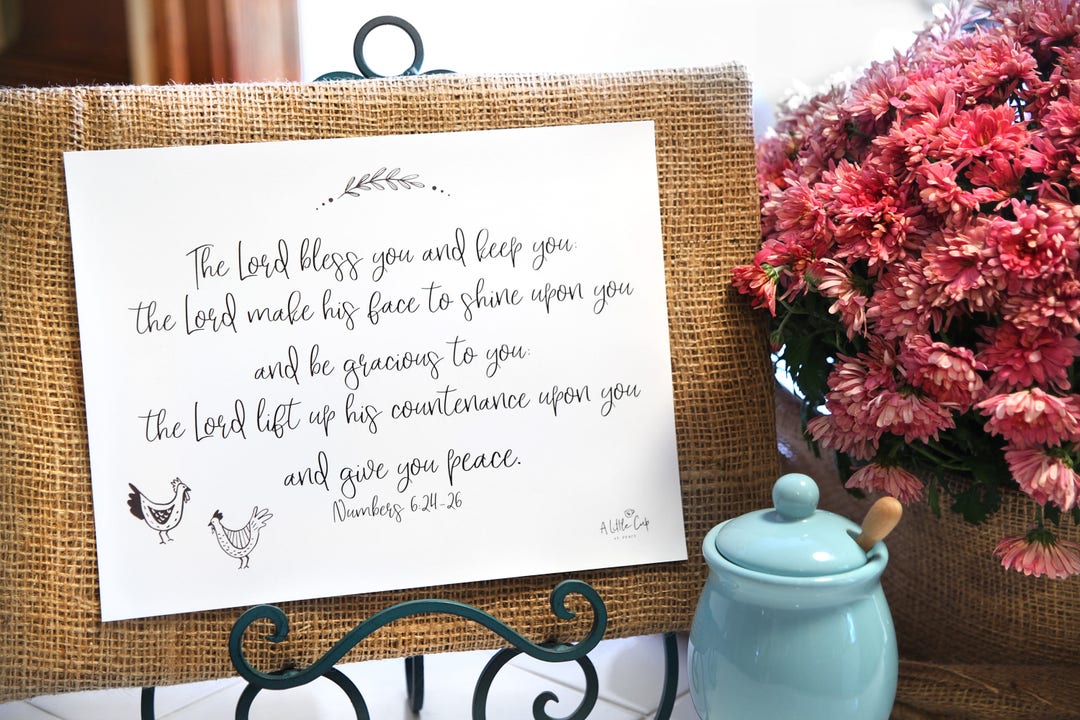 The Lord bless you and keep you:
the Lord make his face to shine upon you
and be gracious to you:
the Lord lift up his countenance upon you
and give you peace.
Numbers 6:24-26
A Little Coop
OF PEACE